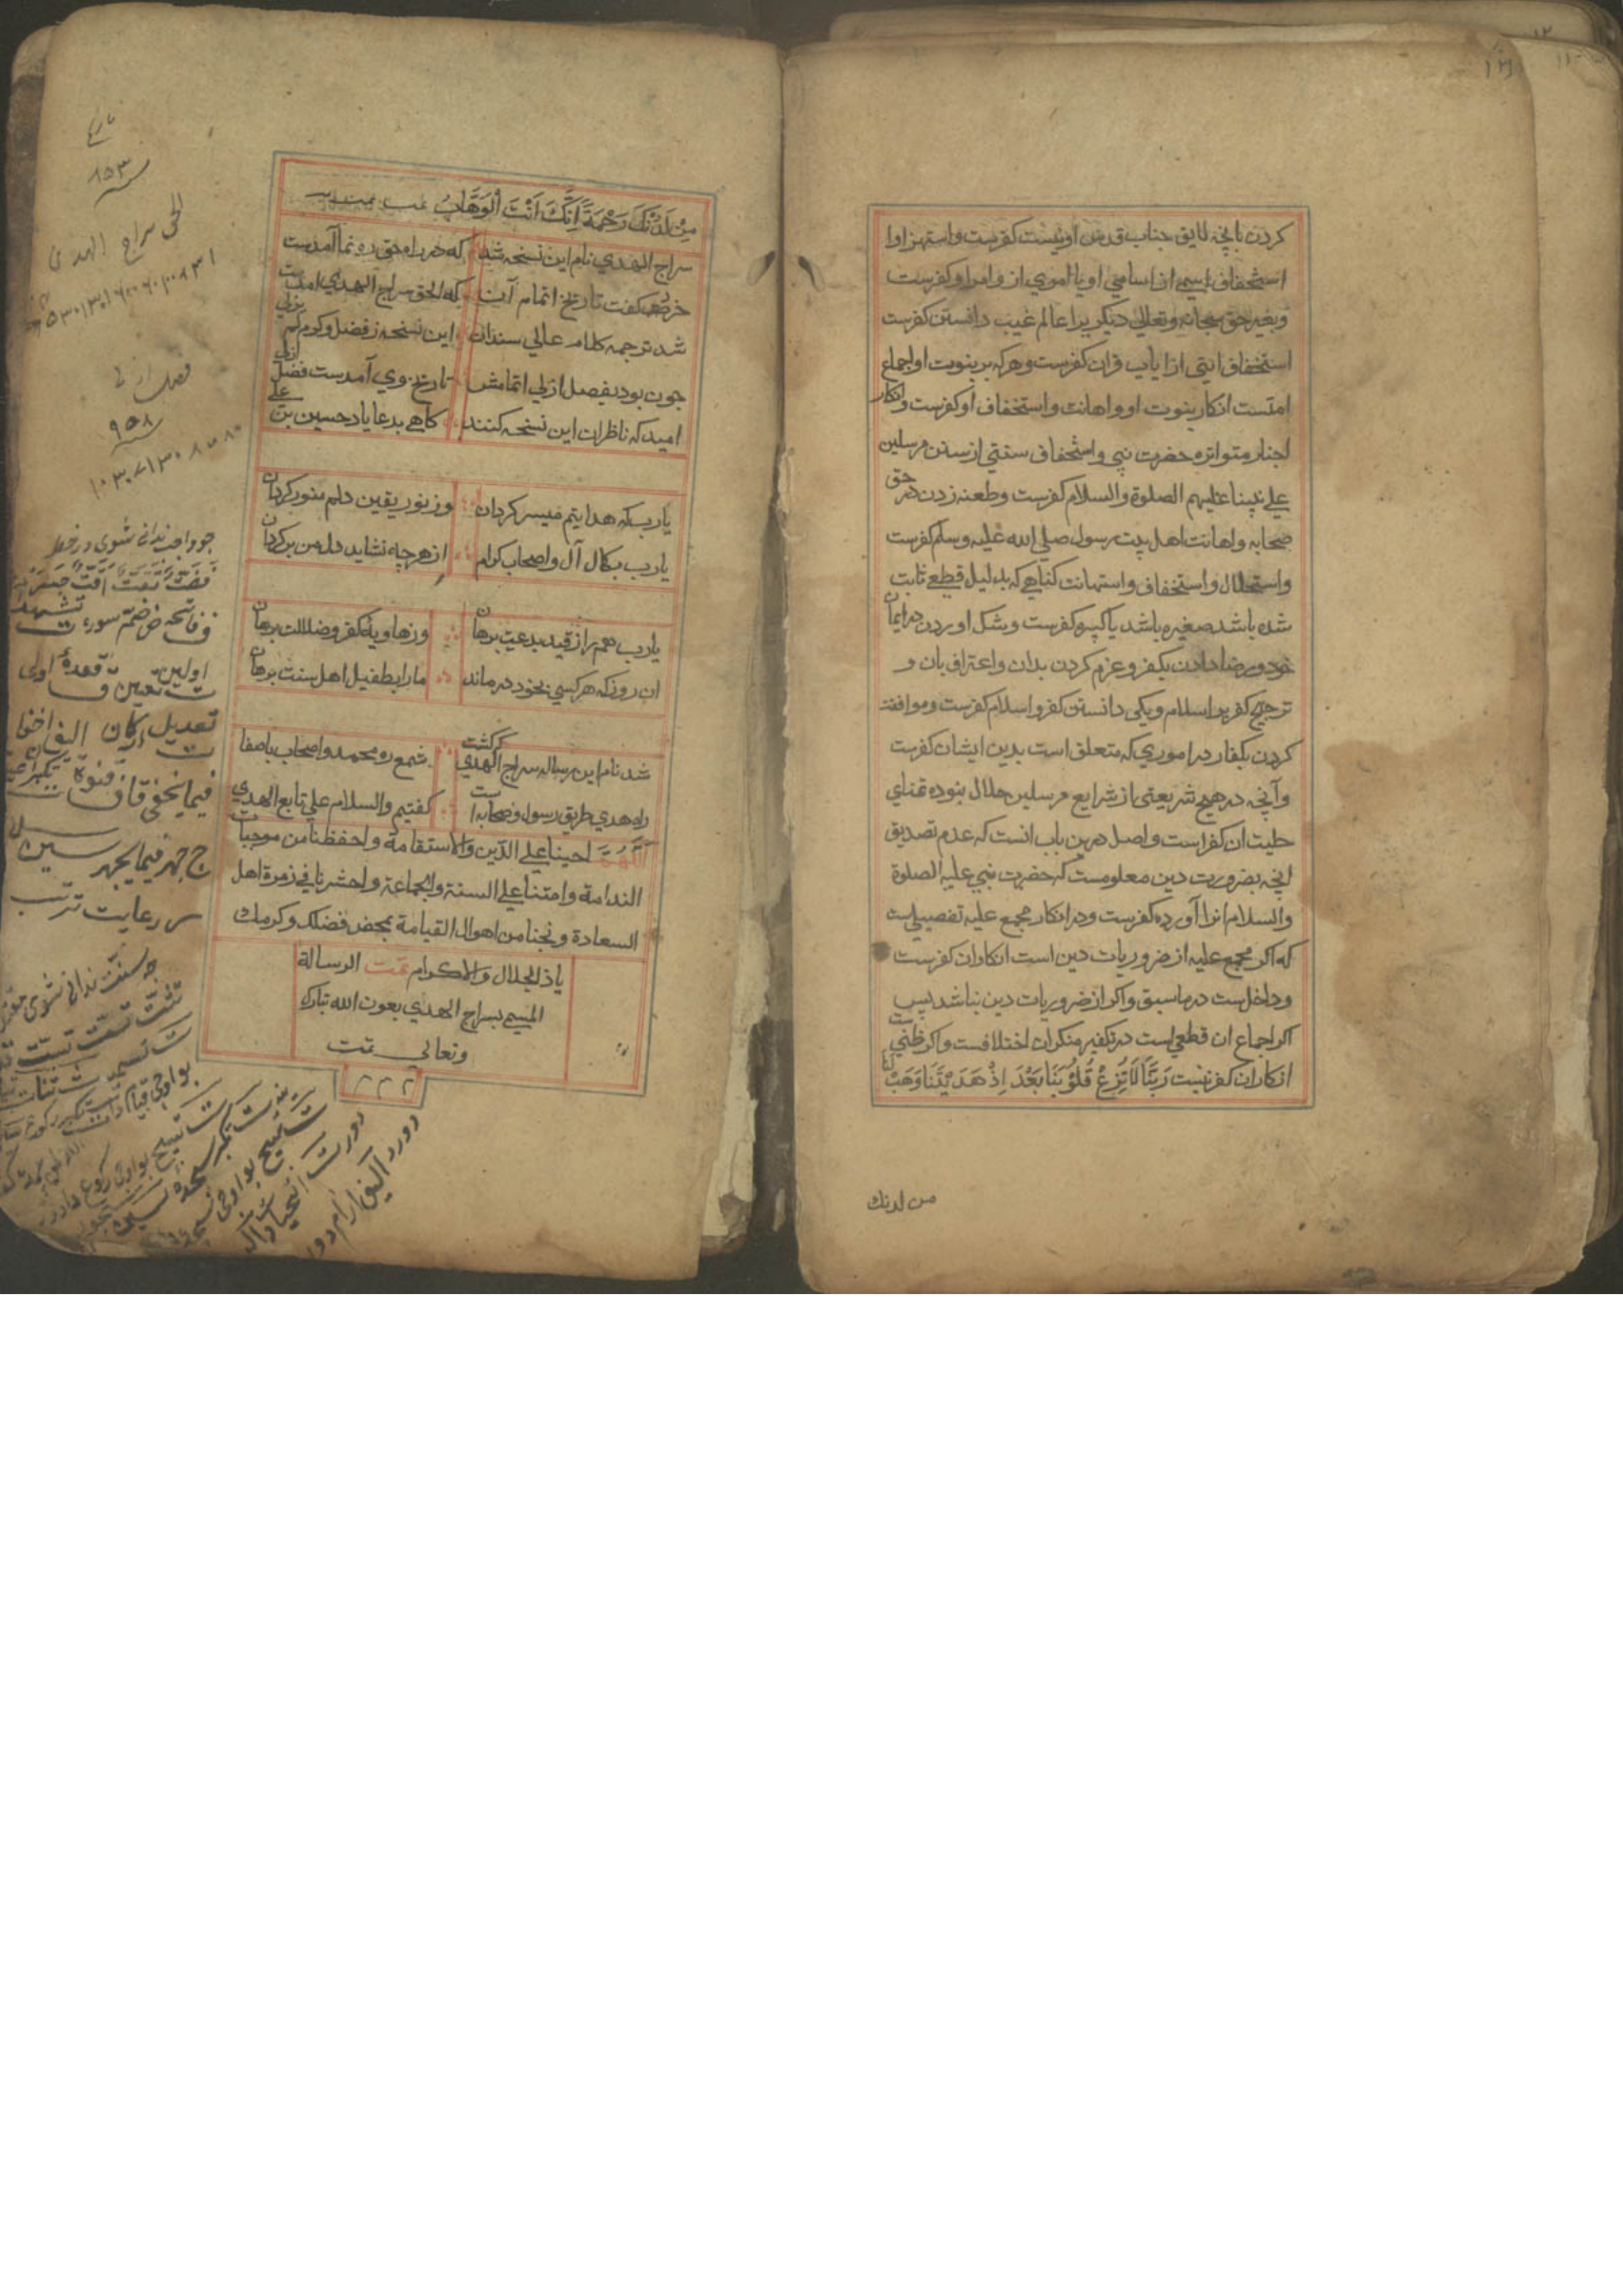 کردن بانچه لایق جناب قدس او نیست کفرست و استهزا و
استخفاف اسمی از اسامی او یا امری از اوامر او کفرست
و بغیر حق سبحانه و تعالی دیگریرا عالم غیب دانستن کفرست
استخفاف ایتی از ایات قران کفرست و هرکه بر نبوت او اجماع
امتست انکار نبوت او و اهانت و استخفاف او کفرست و انکار
اخبار متواتره حضرت نبی و استخفاف سنتی از سنن مرسلین
علی نبینا علیهم الصلوة والسلام کفرست و طعنه زدن در حق
صحابه و اهانت اهل بیت رسول صلی الله علیه وسلم کفرست
و استحلال و استخفاف و استهانت کناهی که بدلیل قطعی ثابت
شده باشد صغیره باشد یا کبیره کفرست و شک اوردن در ایمان
خود و رضا دادن بکفر و عزم کردن بدان و اعتراف بان و
ترجیح کفر بر اسلام و یکی دانستن کفر و اسلام کفرست و موافقت
کردن بکفار در اموری که متعلق است بدین ایشان کفرست
و آنچه در هیچ شریعتی از شرایع مرسلین حلال نبوده تمنای
حلیت ان کفر است و اصل درین باب انست که عدم تصدیق
انچه بضرورت دین معلومست که حضرت نبی علیه الصلوة
والسلام انرا آورده کفرست و در انکار مجمع علیه تفصیلست
که اکر مجمع علیه از ضروریات دین است انکار ان کفرست
و داخل است در ما سبق و اکر از ضروریات دین نباشد پس
اکر اجماع ان قطعی است در تکفیر منکر ان اختلافست و اکر ظنی ست
انکار ان کفر نیست رَبَّنَا لَا تُزِغْ قُلُوْبَنَا بَعْدَ اِذْ هَدَيْتَنَا وَهَبْ لنا
من لدنك
مِنْ لَدُنْكَ رَحْمَةً اِنَّكَ اَنْتَ الْوَهَّابُ
سراج الهدی نام این نسخه شد که در راه حق ره نما آمدست
خرد کفت تاریخ اتمام آن که الحق سراج الهدی امدست
شد ترجمه کلام عالی سندان این نسخه ز فضل و کرم لم یزلی
چون بود بفصل ازلی اتمامش تاریخ وی آمدست فضل ازلی
امید که ناظران این نسخه کنند کاهی بدعا یاد حسین بن علی
یارب که هدایتم میسر کردان وز نور یقین دلم منور کردان
یارب بکمال آل و اصحاب کرام از هر چه نشاید دل من بر کردان
یارب همه را ز قید بدعت برهان وز هاویه کفر و ضلالت برهان
ان روز که هر کسی بخود درماند ما را بطفیل اهل سنت برهان
شد نام این رساله سراج الهدی که کشت شمع ره محمد و اصحاب باصفا
راه هدی طریق رسول و صحابه است کفتیم والسلام علی تابع الهدی
اللهم احینا علی الدین والاستقامة واحفظنا من موجبات
الندامة وامتنا علی السنة والجماعة واحشرنا فی زمرة اهل
السعادة ونجنا من اهوال القیامة بمحض فضلك وکرمك
یا ذالجلال والاکرام تمت الرسالة
المسمی بسراج الهدی بعون الله تبارك
وتعالی تمت
تاریخ
الحق سراج الهدی
فضل ازلی
۹۵۸
چو واجب ندانی شوی در خطر
ف فاتحه ض ضم سوره ت تشهد
اولین ت تعیین ق قعده اولی
ت تعدیل ارکان
فیما یخفی ق قنوت
ج جهر فیما یجهر
ر رعایت ترتیب